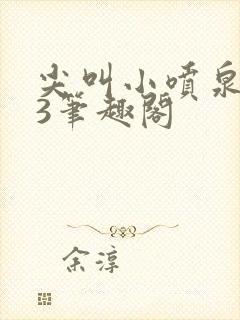 尖叫小喷泉
3笔趣阁
余淳